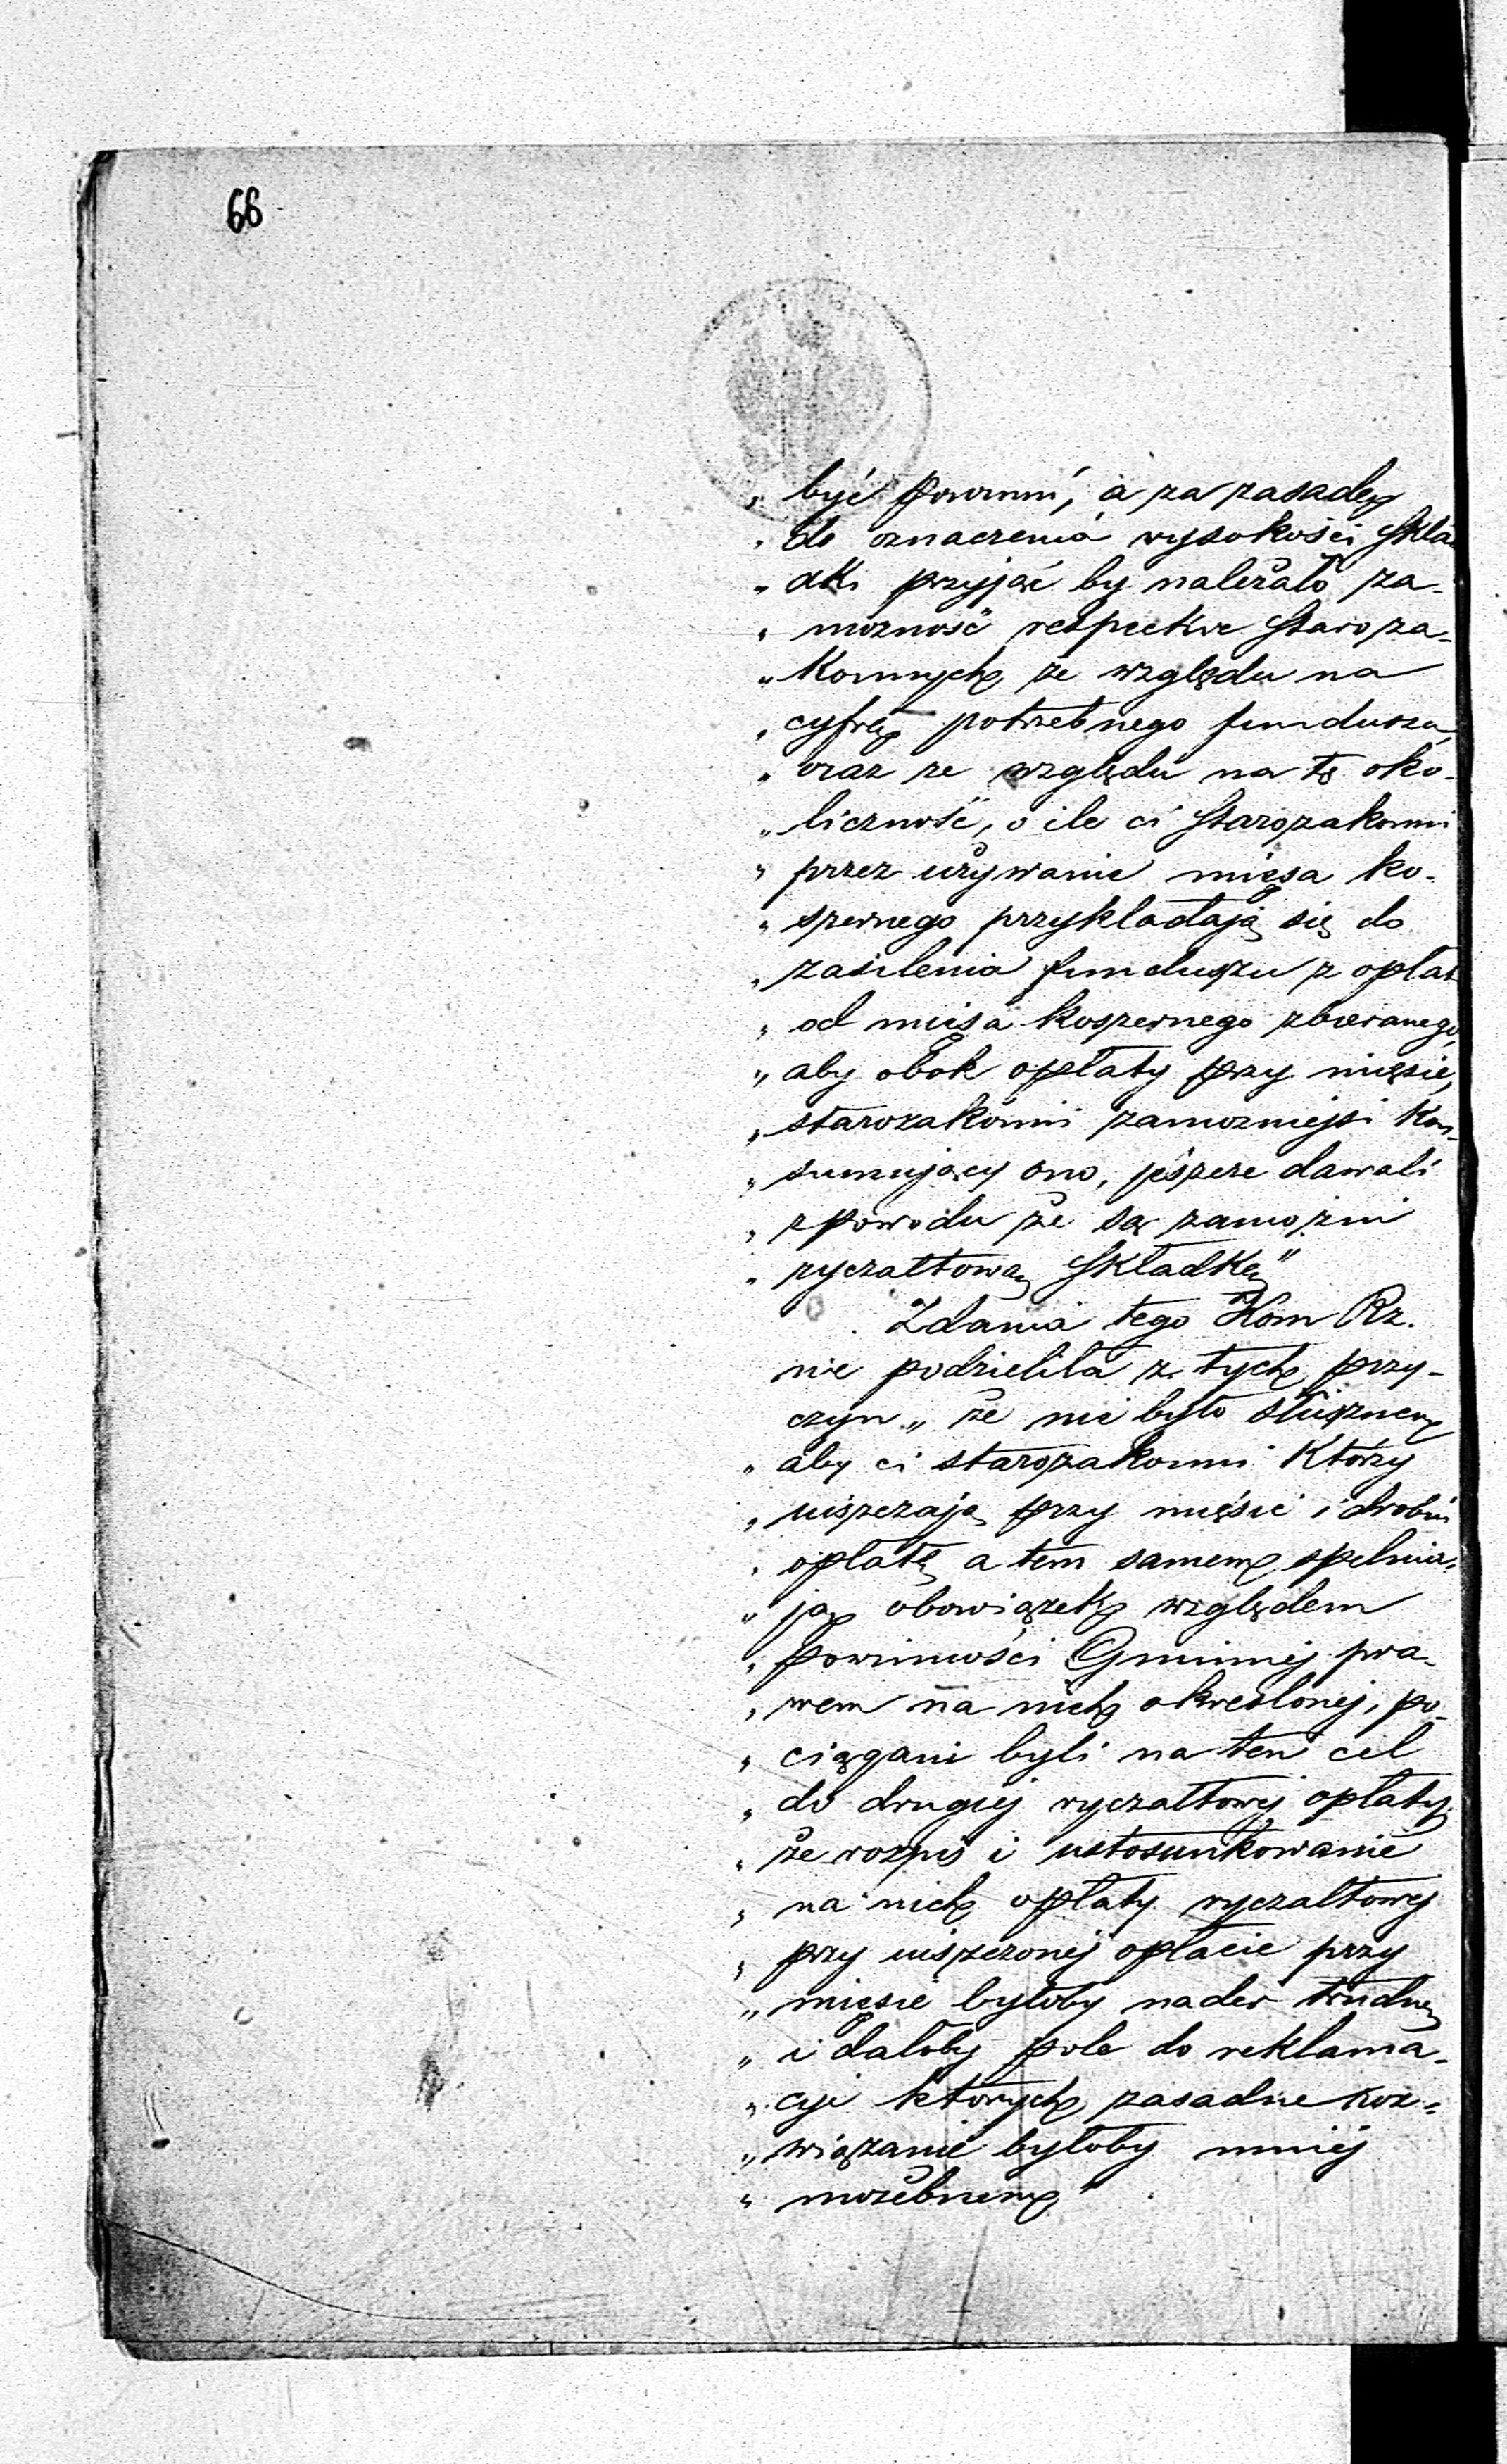 66
„ być powinni, a za zasadę
„ do oznaczenia wysokości Skła
„ dki przyjąć by należało za-
„ możność respective Staroza-
„ Konnych ze względu na
„ cyfrę potrzebnego funduszu,
„ oraz ze względu na tę oko-
„ liczność, o ile ci Starozakonni
„ przez używanie mięsa ko-
„ szernego przykładają się do
„ zasilenia funduszu z opłat
„ od mięsa koszernego zbieranego,
„ aby obok opłaty przy mięsie,
„ starozakonni zamożniejsi Kon-
„ sumujący ono, jeszcze dawali
„ z powodu że są zamożni
„ ryczałtową Składkę"
Zdania tego Kom Rz.
nie podzieliła z tych przy-
czyn „ że nie było słusznem
„ aby ci starozakonni Którzy
„ uiszczają przy mięsie i drobiu
„ opłatę a tem samem spełnia-
„ ją obowiązek względem
„ powinności Gminnej pra-
„ wem na nich określonej, po-
„ ciągani byli na ten cel
„ do drugiej ryczałtowej opłaty,
„ że rozpis i ustosunkowanie
„ na nich opłaty ryczałtowej
„ przy uiszczonej opłacie przy
„ mięsie byłoby nader trudnem
„ i dałoby pole do reklama-
„ cyi których zasadne roz-
„ wiązanie byłoby mniej
„ możebnem"